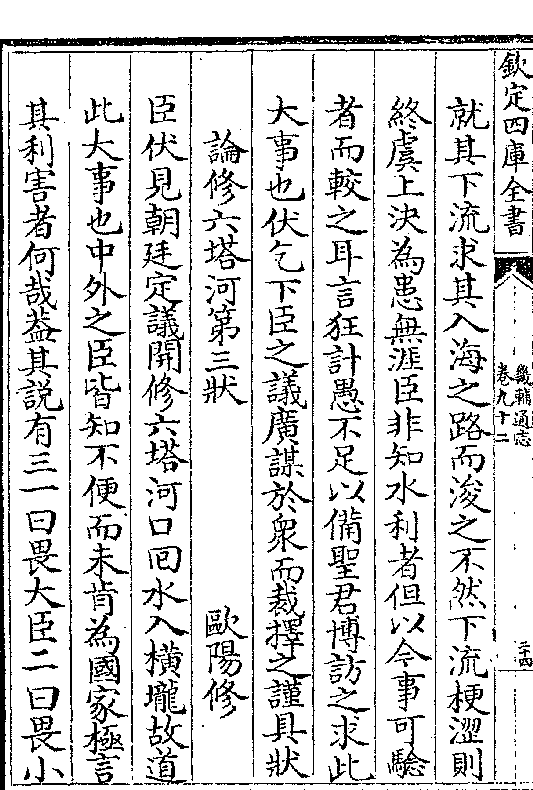 欽定四庫全書
畿輔通志
卷九十二
三十四
就其下流求其入海之路而浚之不然下流梗澀則
終虞上決為患無涯臣非知水利者但以今事可驗
者而較之耳言狂計愚不足以備聖君博訪之求此
大事也伏乞下臣之議廣謀於衆而裁擇之謹具狀
論修六塔河第三狀 歐陽修
臣伏見朝廷定議開修六塔河口回水入橫壠故道
此大事也中外之臣皆知不便而未肯為國家極言
其利害者何哉葢其説有三一曰畏大臣二曰畏小